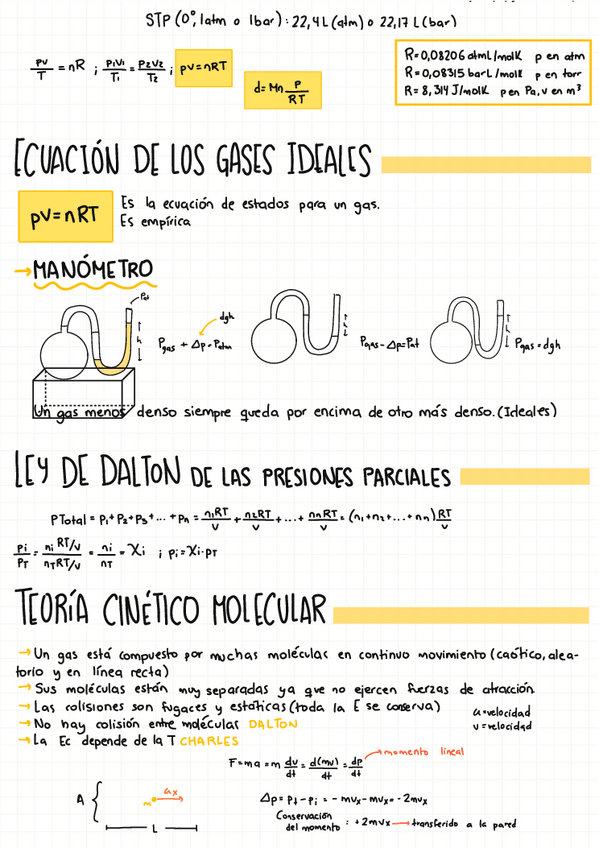 STP (0°, 1atm o 1bar): 22,4 L (atm) o 22,17 L (bar)
PV/T = nR ; P1V1/T1 = P2V2/T2 ; pv=nRT
d= Mn P/RT
R=0,08206 atmL/molK p en atm
R=0,08315 barL/molK p en torr
R= 8,314 J/molK p en Pa, v en m³
ECUACIÓN DE LOS GASES IDEALES
pV=nRT
Es la ecuación de estados para un gas.
Es empírica
→MANÓMETRO
Pat
dgh
h
Pgas + Δp=Patm
h
Pgas - Δp=Pat
h
Pgas = dgh
Un gas menos denso siempre queda por encima de otro más denso. (Ideales)
LEY DE DALTON DE LAS PRESIONES PARCIALES
PTotal = P1+P2+P3+...+Pn = n1RT/V + n2RT/V +...+ nnRT/V = (n1+n2+...+nn) RT/V
Pi/PT = ni RT/V / nTRT/V = ni/nT = Xi ; Pi=Xi·PT
TEORÍA CINÉTICO MOLECULAR
→ Un gas está compuesto por muchas moléculas en continuo movimiento (caótico, alea-
torio y en línea recta)
→ Sus moléculas están muy separadas ya que no ejercen fuerzas de atracción
→ Las colisiones son fugaces y estáticas (toda la E se conserva)
u=velocidad
→ No hay colisión entre moléculas DALTON
v=velocidad
→ La Ec depende de la T CHARLES
F=ma=m dv/dt = d(mv)/dt = dp/dt → momento lineal
A
m
ax
L
Δp= Pf - Pi = - mvx - mvx = - 2mvx
Conservación
del momento : +2mvx → transferido a la pared